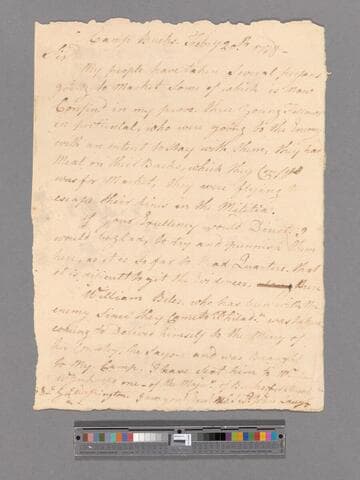 Camp Bucks Febry 20th 1778
Sir
My people have taken Several persons
going to Market Some of which is now
Confind in my provo three Young Fellows
in perticulal, who were going to the Enemy
with an intent to Stay with them, they had
Meat on their Backs, which they
was for Market, they were trying to
escape their fines in the Militia.
if your Excellency would Direct I
would to try and punnish them
here, as it is so far to Head Quarters that
it is dificult to get the Evidences there
William Biles, who has been with the
enemy Since they Came to Philada was taken
coming to Deliver himself to the Mercy of
his Country, he Says and was Brought
to My Camp, I have Sent him to Mr
one of the Majts of Bucks
I am your